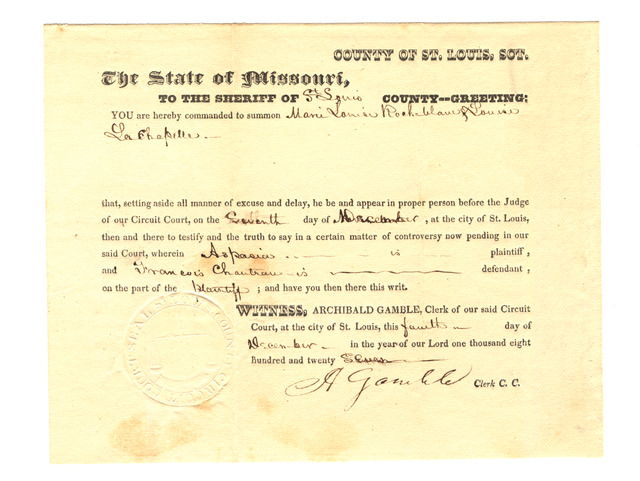 COUNTY OF ST. LOUIS, SCT.
The State of Missouri,
TO THE SHERIFF OF St Louis COUNTY--GREETING:
YOU are hereby commanded to summon Marie Louise Rocheblave & Louise
La Chapelle
that, setting aside all manner of excuse and delay, he be and appear in proper person before the Judge
of our Circuit Court, on the Seventh day of December, at the city of St. Louis,
then and there to testify and the truth to say in a certain matter of controversy now pending in our
said Court, wherein Aspasia is plaintiff,
and Francois Chouteau is defendant,
on the part of the plaintiff; and have you then there this writ.
WITNESS, ARCHIBALD GAMBLE, Clerk of our said Circuit
Court, at the city of St. Louis, this fourth day of
December in the year of our Lord one thousand eight
hundred and twenty Seven
A Gamble Clerk C. C.